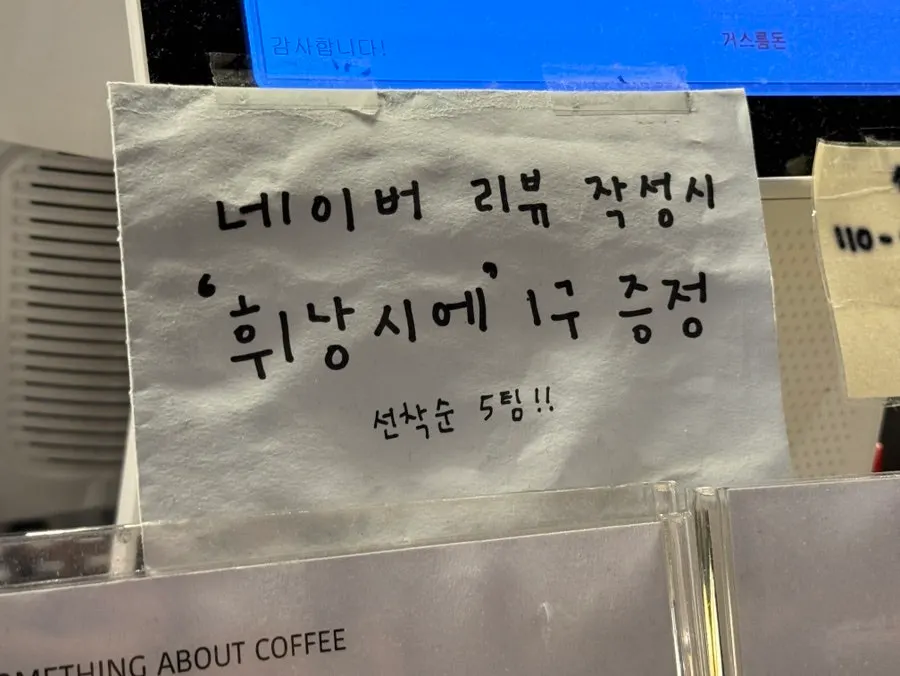 감사합니다!
거스름돈
네이버 리뷰 작성시
'휘낭시에' 1구 증정
선착순 5팀!!
110-
OMETHING ABOUT COFFEE